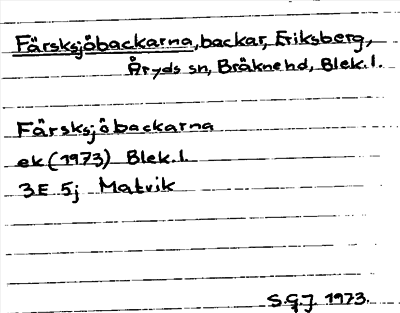 Färsksjöbackarna, backar, Eriksberg,
Åryds sn, Bräkne hd, Blek. l.
Färsksjöbackarna
ek (1973) Blek. l.
3E 5j Matvik
S.G.J. 1973.